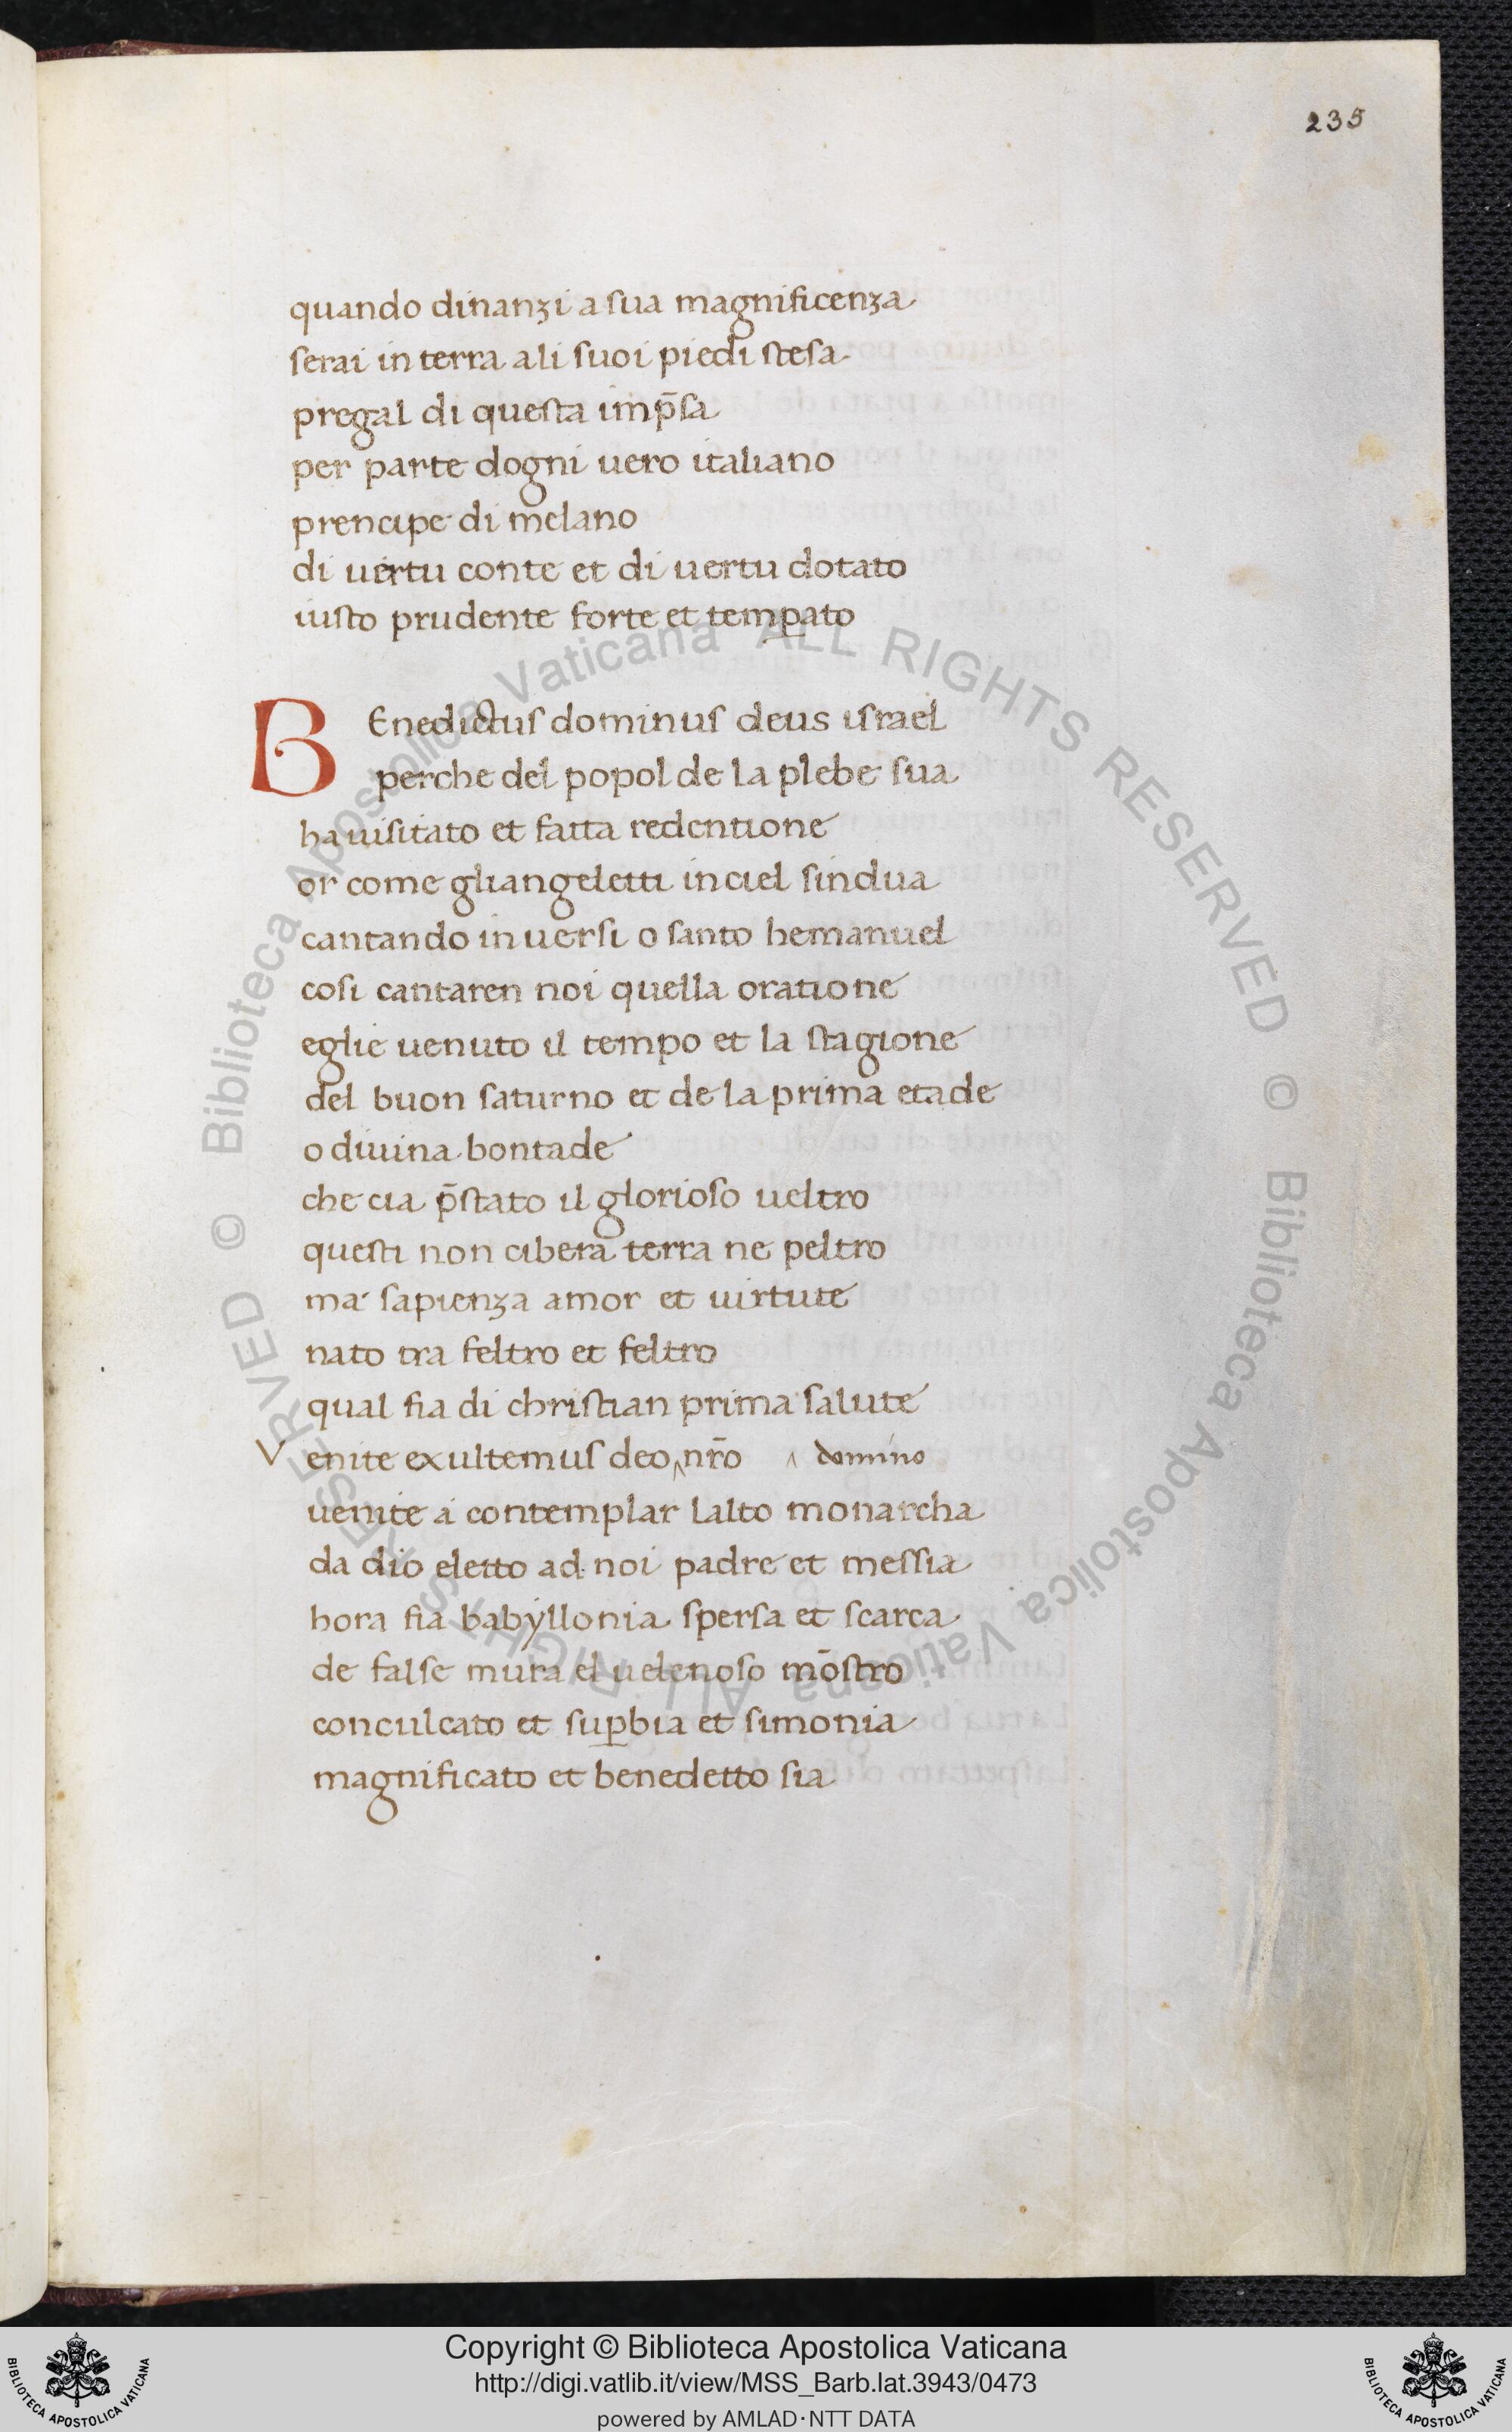 235
quando dinanzi a sua magnificenza
serai in terra ali suoi piedi stesa
pregal di questa imp̄sa
per parte dogni uero italiano
prencipe di melano
di uertu conte et di uertu dotato
iusto prudente forte et temꝑato
BEnedictus dominus deus israel
perche del popol de la plebe sua
ha uisitato et fatta redentione
or come gliangeletti in ciel sindua
cantando in uersi o santo hemanuel
cosi cantaren noi quella oratione
eglie uenuto il tempo et la stagione
del buon saturno et de la prima etade
o diuina bontade
che cia p̄stato il glorioso ueltro
questi non cibera terra ne peltro
ma sapienza amor et uirtute
nato tra feltro et feltro
qual fia di christian prima salute
Venite exultemus deo ‸ nr̄o ‸ domino
uenite a contemplar lalto monarcha
da dio eletto ad noi padre et messia
hora fia babyllonia spersa et scarca
de false mura el uelenoso mōstro
conculcato et suꝑbia et simonia
magnificato et benedetto sia
© Biblioteca Apostolica Vaticana ALL RIGHTS RESERVED © Biblioteca Apostolica Vaticana ALL RIGHTS RESERVED
BIBLIOTECA APOSTOLICA VATICANA
Copyright © Biblioteca Apostolica Vaticana
http://digi.vatlib.it/view/MSS_Barb.lat.3943/0473
powered by AMLAD·NTT DATA
BIBLIOTECA APOSTOLICA VATICANA